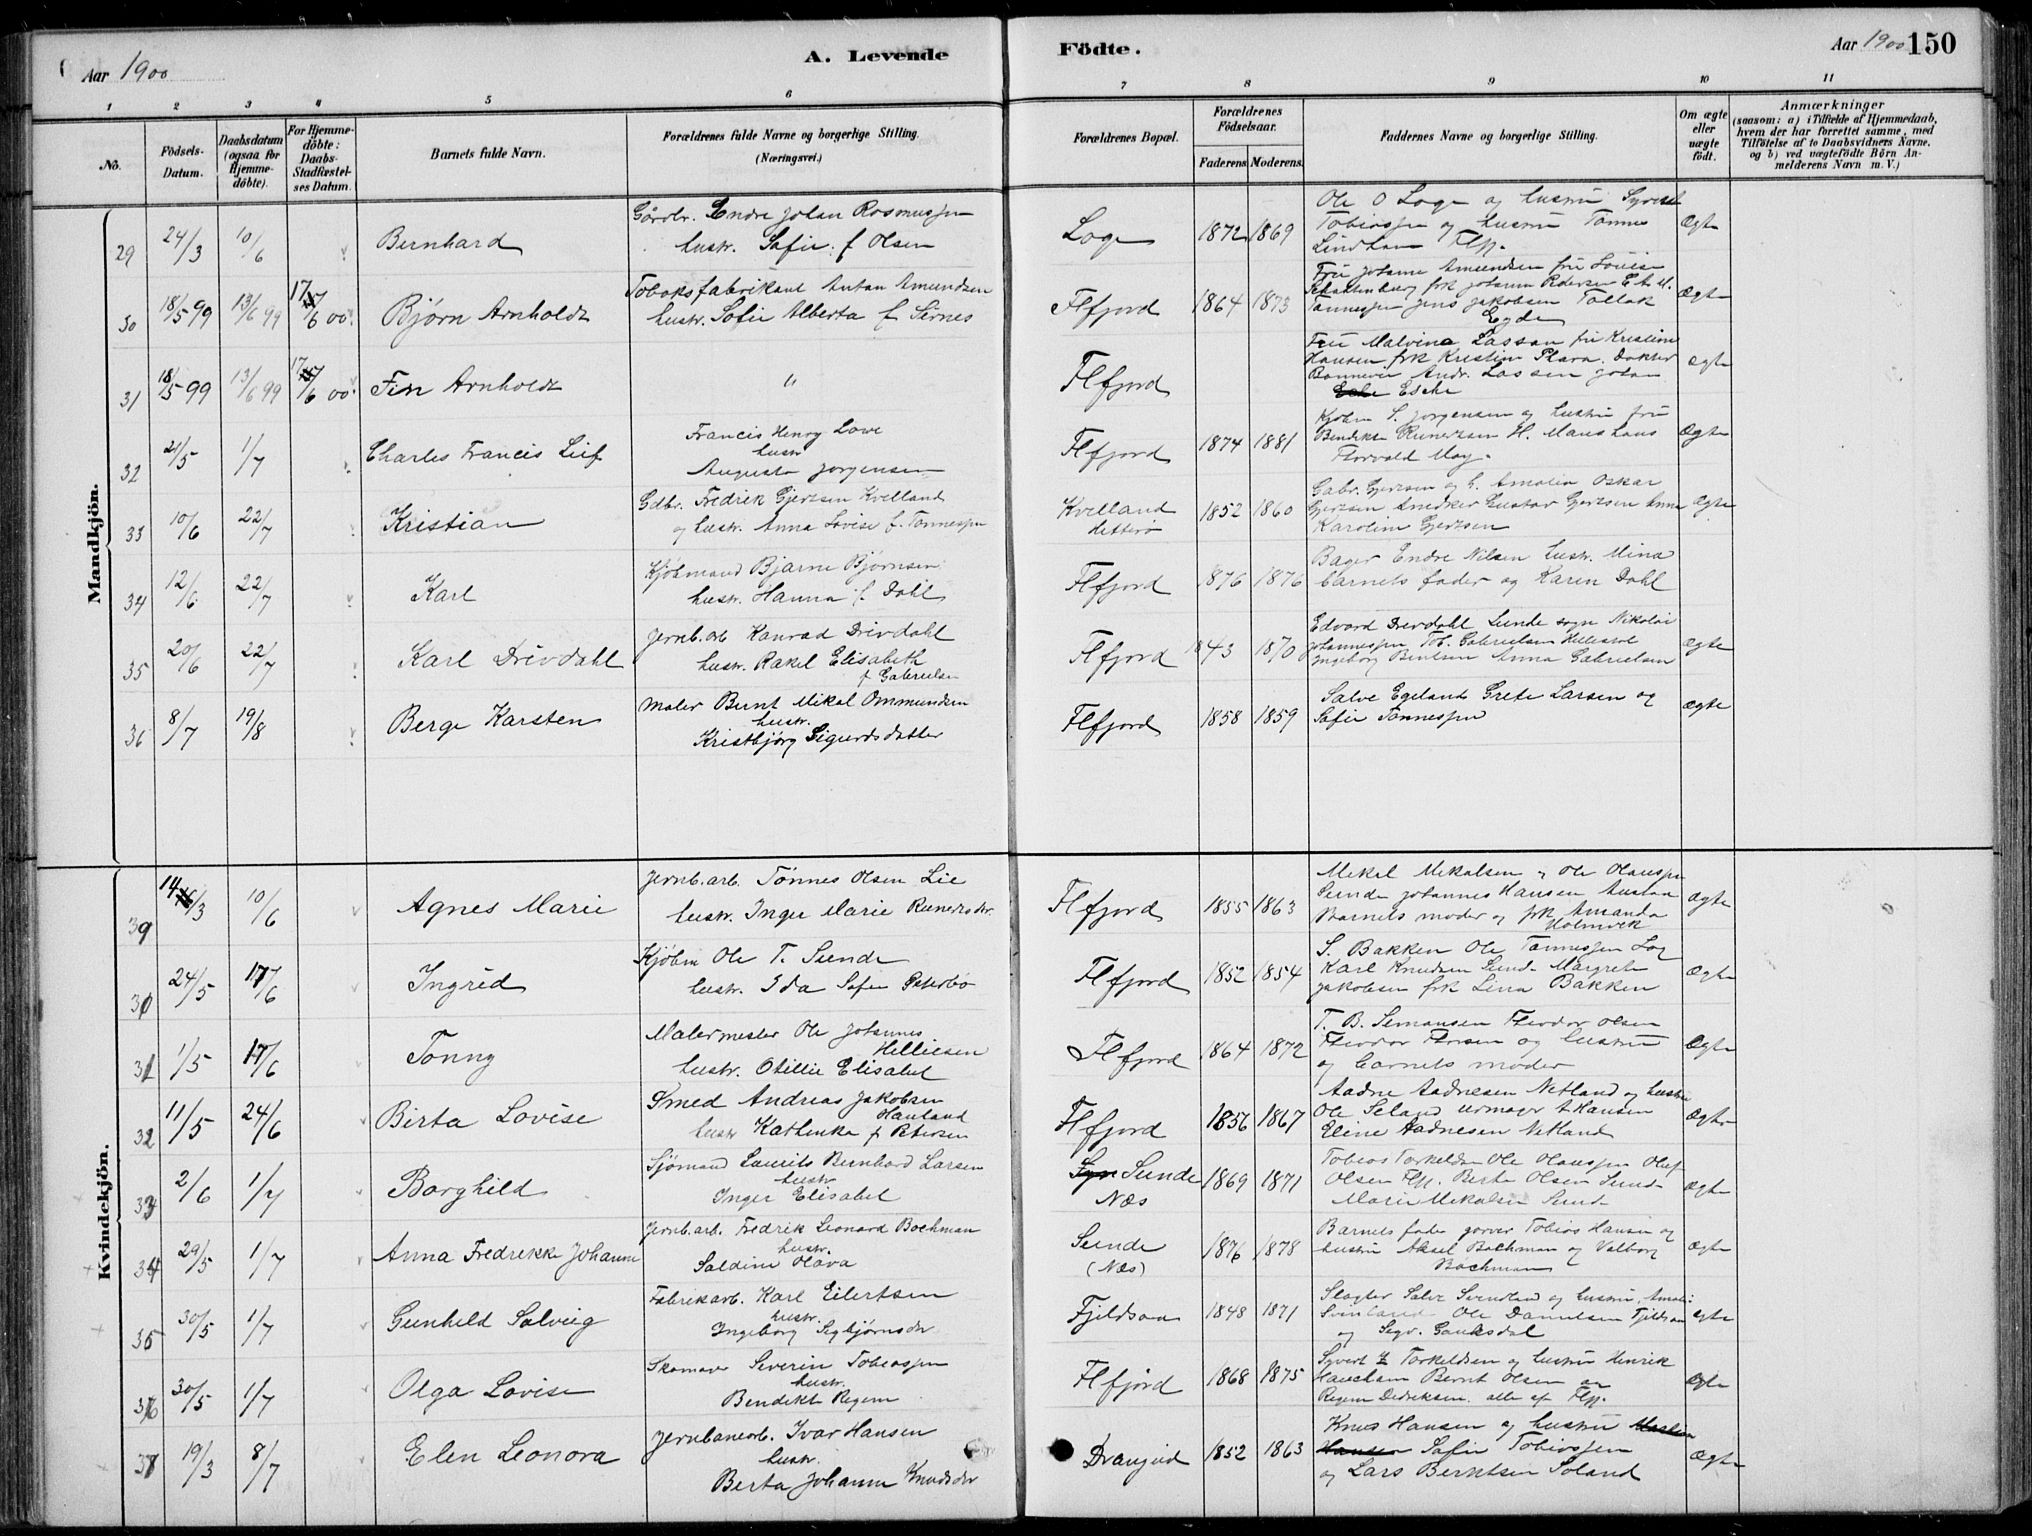 Aar 1900
A. Levende
Födte.
Aar 1900 150
1 2 3 4 5 6 7 8 9 10 11
No.
Födsels-Datum.
Daabsdatum (ogsaa for Hjemmedöbte).
For Hjemmedöbte: Daabs-Stadfæstelses Datum.
Barnets fulde Navn.
Forældrenes fulde Navne og borgerlige Stilling. (Næringsvei.)
Forældrenes Bopæl.
Forældrenes Födselsaar.
Faderens. Moderens.
Faddernes Navne og borgerlige Stilling.
Om ægte eller uægte födt.
Anmærkninger
(saasom: a) i Tilfælde af Hjemmedaab, hvem der har forrettet samme, med Tilföielse af to Daabsvidners Navne, og b) ved uægtefödte Börn Anmelderens Navn m. V.)
Mandkjön.
29 24/3 10/6 Bernhard
Endre Johan Rasmussen
hustr. Sofie f Olsen
Loge 1872 1869
Ole O Loge og hustru Syvert
Tobiassen og hustru Tonnes
Lindham Flfj.
Ægte
30 18/5 99 13/6 99 17/6 00 Bjørn Arnholdt
Tobaksfabrikant Anton Amundsen
hustr. Sofie Alberta f Sirnes
Flfjord 1864 1873
Fru Johanne Amundsen fru Louise
frk Johanna Pedersen
Tønnessen Jens Jakobsen Tollak
Egde
Ægte
31 18/5 99 13/6 99 17/6 00 Finn Arnholdt
"
Flfjord
Fru Malvina Lassen fru Kristine
Hansen frk Kristine Doktor
Bonnevie Andr. Lassen Johan
Esche
ægte
32 21/5 1/7 Charles Francis Leif
Francis Henry Lowe
hustr
Augusta Jørgensen
Flfjord 1874 1881
Kjøbm S. Jørgensen og hustru fru
Bendikte Reinertsen H.
Thorvald May.
Ægte
33 10/6 22/7 Kristian
Gdbr. Fredrik Gjertsen Kvelland
og hustr. Anna Lovise f. Tønnessen
Kvelland
Hitterø
1852 1860
Gabr. Gjertsen og h. Amalia Oskar
Gjertsen Snedker Gustav Gjertsen Anna
Karoline Gjertsen
Ægte
34 12/6 22/7 Karl
Kjøbmand Bjarne Bjørnsen
hustr. Hanna f. Dahl
Flfjord 1876 1876
Bager Endre Nilsen hustr. Mina
barnets fader og Karen Dahl
35 20/6 22/7 Karl Drivdahl
Jernb.arb Konrad Drivdahl
hustr. Rakel Elisabeth
f Gabrielsen
Flfjord 1843 1870
Edvard Drivdahl Lunde sogn Nikolai
Johannessen Tob. Gabrielsen
Ingeborg Berntsen Anna Gabrielsen
Ægte
36 8/7 19/8 Berge Karsten
Maler Bernt Mikal Ommundsen
hustr.
Kristbjörg Sigurdsdatter
Flfjord 1858 1859
Salve Egeland Grete Larsen og
Sofie Tønnessen
Ægte
Kvindekjön.
14/3 10/6 Agnes Marie
Jernb.arb. Tönnes Olsen Lie
hustr. Inger Marie Reinertsdtr.
Flfjord 1855 1863
Mikal Mikalsen og Ole Olaussen
Sunde Johannes Hansen
Barnets moder og frk Amanda
Holmvik
Ægte
30 24/5 17/6 Ingrid
Kjöbm Ole T. Sunde
hustr. Ida Sofie Peterbø
Flfjord 1852 1854
S. Bakken Ole Tønnessen Log
Karl Knudsen Sunde Margrete
Jakobsen frk Lina Bakken
Ægte
31 1/5 17/6 Tonny
Malermester Ole Johannes
Helliesen
hustr. Otillie Elisabet
Flfjord 1864 1872
T. B. Simonsen Theodor Olsen
Theodor Thorsen og hustru
og barnets moder
Ægte
32 11/5 24/6 Birta Lovise
Smed Andreas Jakobsen
Hauland
hustr Kathinka f Petersen
Flfjord 1856 1867
Aadne Aadnesen Netland og hustru
Ole Seland urmager A Hansen
Eline Aadnesen Netland
Ægte
33 2/6 1/7 Borghild
Sjömand Laurits Bernhard Larsen
hustr.
Inger Elisabet
Sunde
Næs
1869 1871
Tobias Torkeldsen Ole Olaussen Oluf
Olsen Flfj. Berte Olsen Sunde
Marie Mikalsen Sunde
Ægte
34 29/5 1/7 Anna Fredrikke Johanne
Jernb.arb. Fredrik Leonard Bochman
hustr.
Saldine Olava
Sunde
(Næs)
1876 1878
Barnets fader garver Tobias Hansen og
hustru Aksel Bochman og Valborg
Bochman
Ægte
35 30/5 1/7 Gunhild Solveig
Fabrikarb. Karl Eilertsen
hustr.
Ingeborg Segbjørnsdtr
Fjeldsaa 1848 1871
Slagter Salve Svindland og hustru Amalie
Svindland Ole Danielsen Fjeldsaa
og Segv. Gauksdal
Ægte
36 30/5 1/7 Olga Lovise
Skomager Severin Tobiassen
hustr.
Bendikte Regine
Flfjord 1868 1875
Syvert Z Torkeldsen og hustru Henrik
Haucham Bernt Olsen og
Regine Didriksen alle af Flfj.
Ægte
37 19/3 8/7 Elen Leonora
Jernbanearb. Ivar Hansen
hustr.
Berta Johanne Knudsdtr
Drangeid 1852 1863
Knud Hansen og hustru
Hansen Sofie Tobiassen
og Lars Berntsen Soland
Ægte